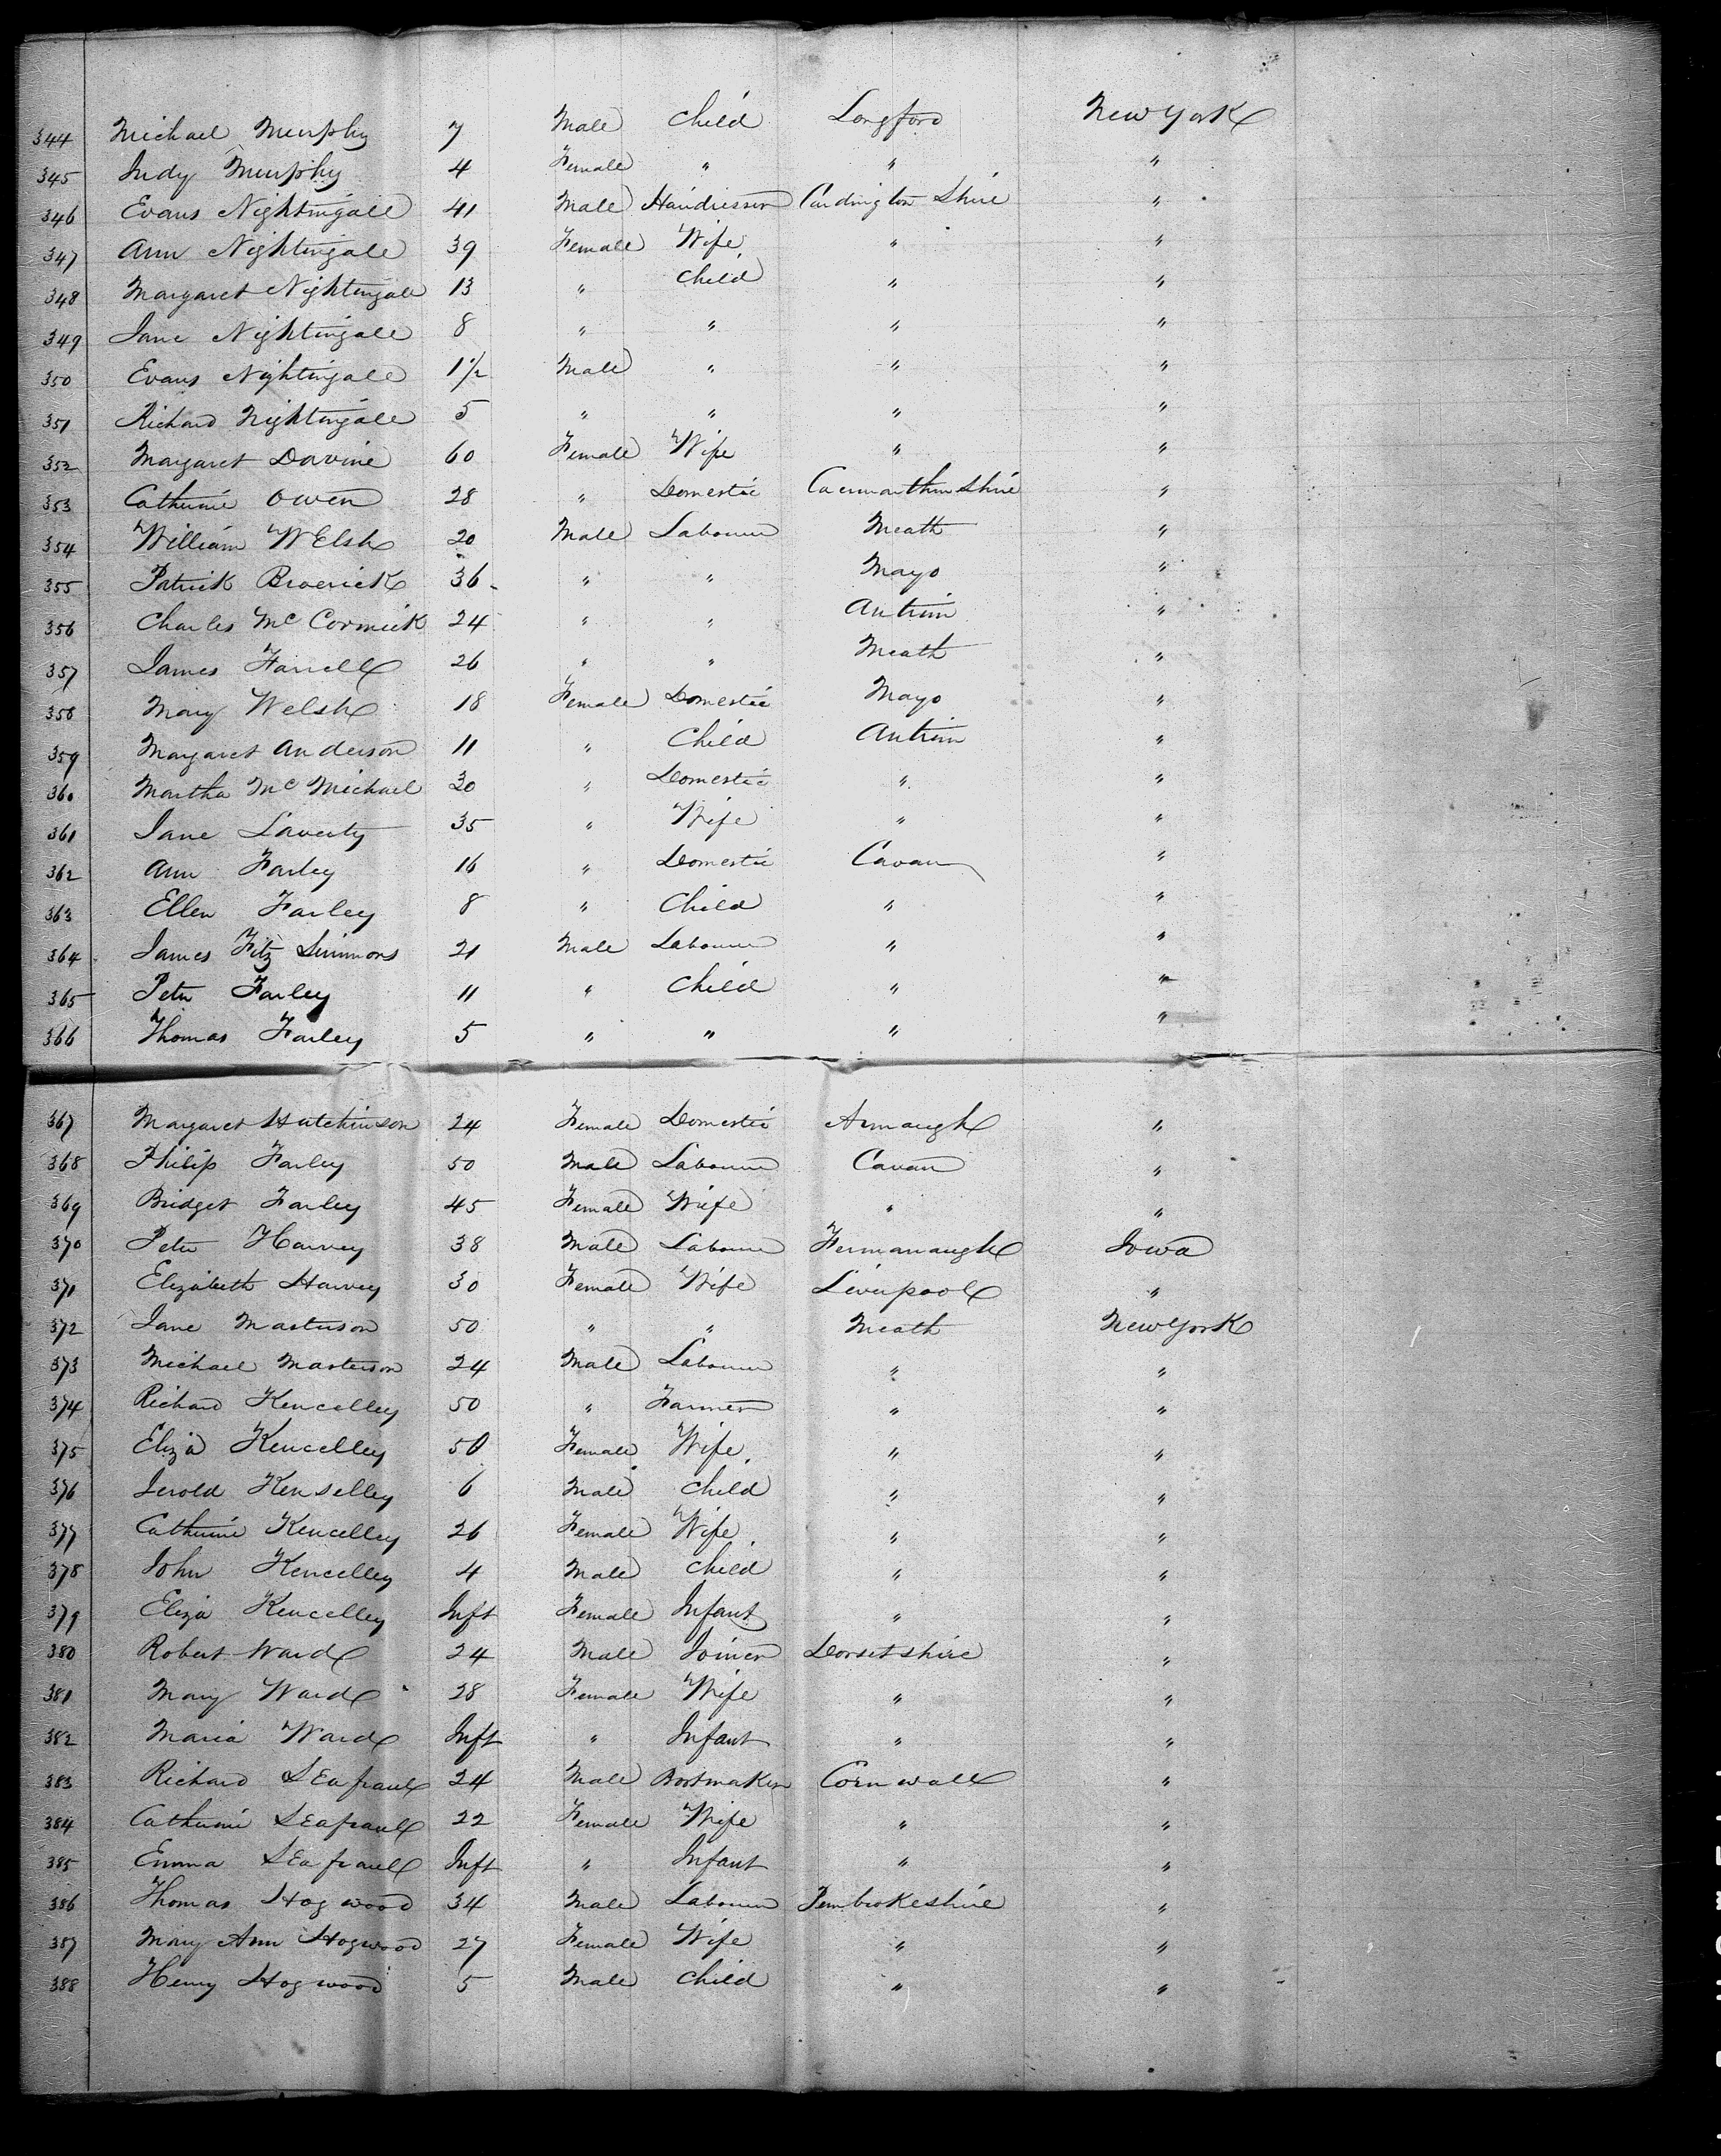 344 Michael Murphy 7 Male Child Longford New York
345 Judy Murphy 4 Female " " "
346 Evans Nightingale 41 Male Hairdresser Cardington Shire "
347 Ann Nightingale 39 Female Wife " "
348 Margaret Nightingale 13 " Child " "
349 Jane Nightingale 8 " " " "
350 Evans Nightingale 1 1/2 Male " " "
351 Richard Nightingale 5 " " " "
352 Margaret Davine 60 Female Wife " "
353 Catherine Owen 28 " Domestic Caermarthen Shire "
354 William Welsh 20 Male Labourer Meath "
355 Patrick Broerick 36 " " Mayo "
356 Charles McCormick 24 " " Antrim "
357 James Farrell 26 " " Meath "
358 Mary Welsh 18 Female Domestic Mayo "
359 Margaret Anderson 11 " Child Antrim "
360 Martha McMichael 30 " Domestic " "
361 Jane Laverty 35 " Wife " "
362 Ann Farley 16 " Domestic Cavan "
363 Ellen Farley 8 " Child " "
364 James Fitz Simmons 21 Male Labourer " "
365 Peter Farley 11 " Child " "
366 Thomas Farley 5 " " " "
367 Margaret Hutchinson 24 Female Domestic Armaugh "
368 Philip Farley 50 Male Labourer Cavan "
369 Bridget Farley 45 Female Wife " "
370 Peter Harvey 38 Male Labourer Fermanaugh Iowa
371 Elizabeth Harvey 30 Female Wife Liverpool "
372 Jane Masterson 50 " " Meath New York
373 Michael Masterson 24 Male Labourer " "
374 Richard Kencelley 50 " Farmer " "
375 Eliza Kencelley 50 Female Wife " "
376 Jerold Kenselley 6 Male Child " "
377 Catherine Kencelley 26 Female Wife " "
378 John Kencelley 4 Male Child " "
379 Eliza Kencelley Inft Female Infant " "
380 Robert Ward 24 Male Joiner Dorsetshire "
381 Mary Ward 28 Female Wife " "
382 Maria Ward Inft " Infant " "
383 Richard 24 Male Bootmaker Cornwall "
384 Catherine 22 Female Wife " "
385 Emma Inft " Infant " "
386 Thomas Hogwood 34 Male Labourer Pembrokeshire "
387 Mary Ann Hogwood 27 Female Wife " "
388 Henry Hogwood 5 Male Child " "